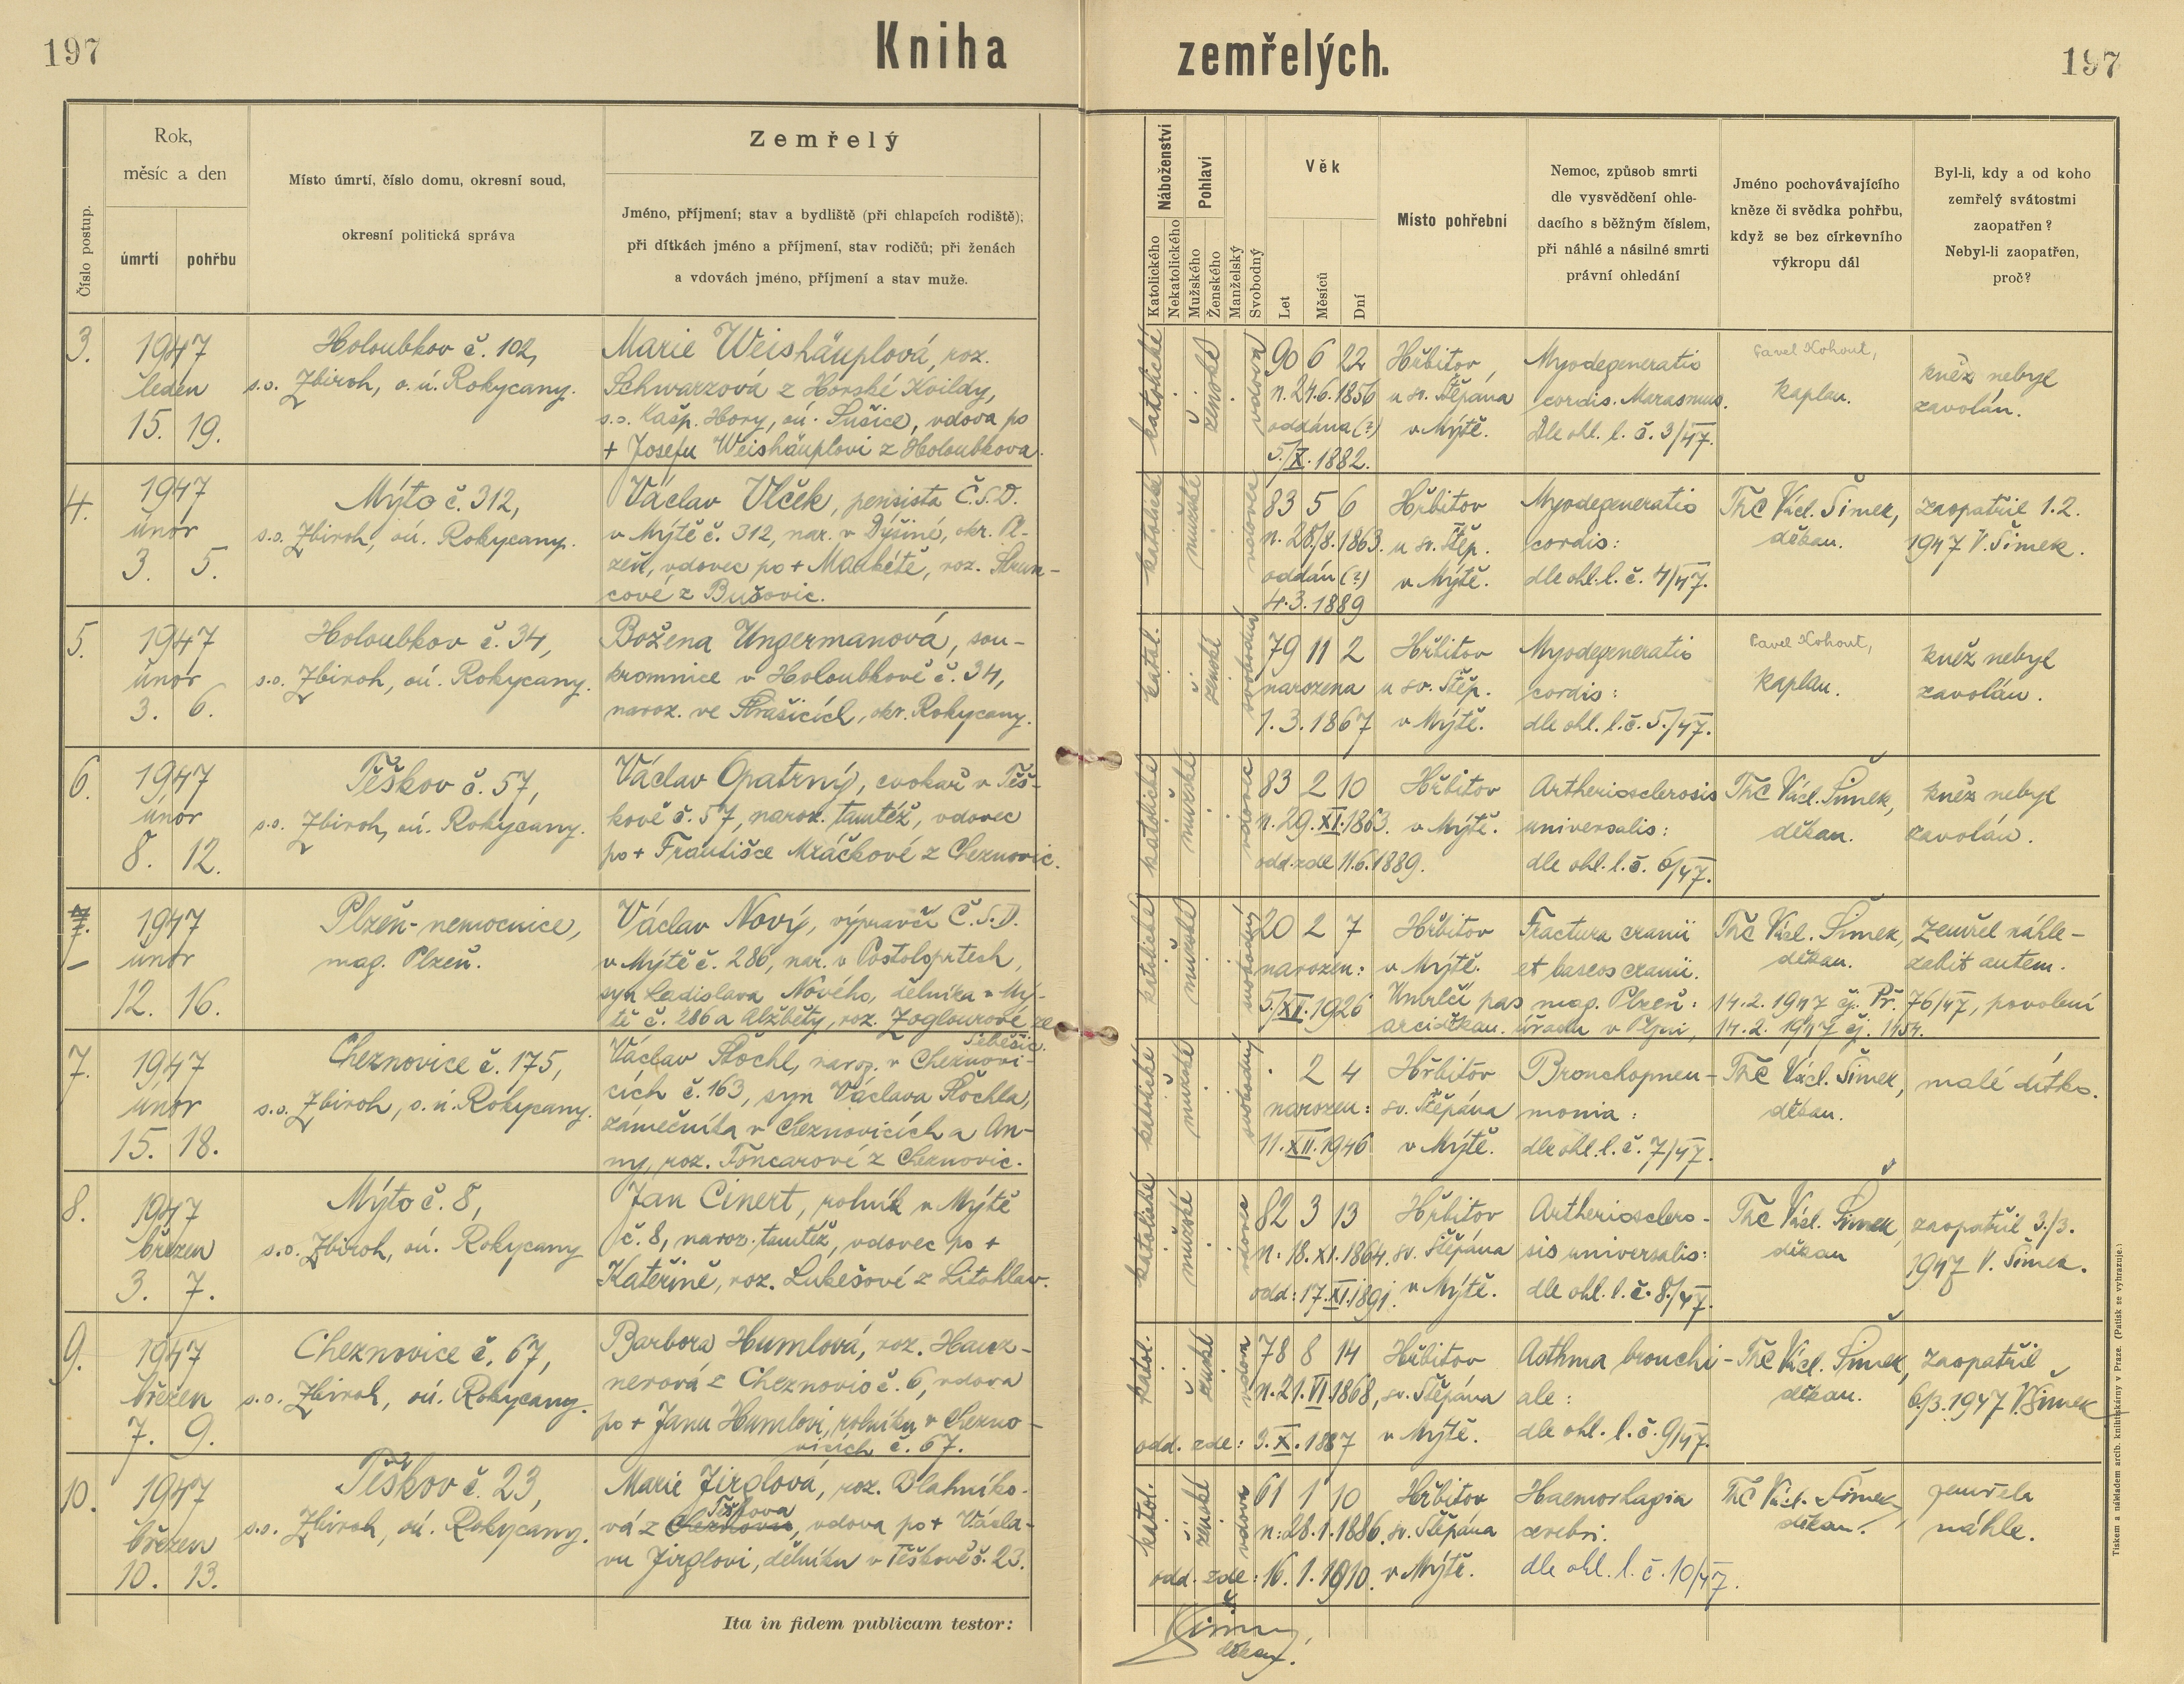 197
Kniha zemřelých.
197
Číslo postup.
Rok,
měsíc a den
úmrtí
pohřbu
Místo úmrtí, číslo domu, okresní soud,
okresní politická správa
Zemřelý
Jméno, příjmení; stav a bydliště (při chlapcích rodiště);
při dítkách jméno a příjmení, stav rodičů; při ženách
a vdovách jméno, příjmení a stav muže.
Náboženství
Katolického
Nekatolického
Pohlaví
Mužského
Ženského
Manželský
Svobodný
Věk
Let
Měsíců
Dní
Místo pohřební
Nemoc, způsob smrti
dle vysvědčení ohle-
dacího s běžným číslem,
při náhlé a násilné smrti
právní ohledání
Jméno pochovávajícího
kněze či svědka pohřbu,
když se bez církevního
výkropu dál
Byl-li, kdy a od koho
zemřelý svátostmi
zaopatřen?
Nebyl-li zaopatřen,
proč?
3.
1947
leden
15. 19.
Holoubkov č. 102,
s.o. Zbiroh, o.ú. Rokycany.
Marie Weishäuplová, roz.
Schwarzová z Horské Kvildy,
s.o. Kašp. Hory, oú. Sušice, vdova po
+ Josefu Weishäuplovi z Holoubkova.
katolické
ženské
vdova
90 6 22
n. 24.6.1856
oddána (?)
5./X. 1882.
Hřbitov
u sv. Štěpána
v Mýtě.
Myodegeneratio
cordis. Marasmus.
Dle ohl. l. č. 3/47.
Pavel Kohout,
kaplan.
kněz nebyl
zavolán.
4.
1947
únor
3. 5.
Mýto č. 312,
s.o. Zbiroh, oú. Rokycany.
Václav Vlček, pensista Č.S.D.
v Mýtě č. 312, nar. v Dýšině, okr. Pl-
zeň, vdovec po + Markétě, roz. Strun-
cové z Bušovic.
katolické
mužské
vdovec
83 5 6
n. 28./8. 1863.
oddán (?)
4.3. 1889
Hřbitov
u sv. Štěp.
v Mýtě.
Myodegeneratio
cordis:
dle ohl. l. č. 4/47.
ThC Václ. Šimek,
děkan.
zaopatřil 1.2.
1947 V. Šimek.
5.
1947
únor
3. 6.
Holoubkov č. 34,
s.o. Zbiroh, oú. Rokycany.
Božena Ungermanová, sou-
kromnice v Holoubkově č. 34,
naroz. ve Strašicích, okr. Rokycany.
katol.
ženské
svobodná
79 11 2
narozena
1. 3. 1867
Hřbitov
u sv. Štěp.
v Mýtě.
Myodegeneratio
cordis:
dle ohl. l. č. 5./47.
Pavel Kohout,
kaplan.
kněz nebyl
zavolán.
6.
1947
únor
8. 12.
Těškov č. 57,
s.o. Zbiroh, oú. Rokycany.
Václav Opatrný, cvokař v Těš-
kově č. 57, naroz. tamtéž, vdovec
po + Františce Mráčkové z Cheznovic.
katolické
mužské
vdovec
83 2 10
n. 29. XI. 1863.
odd. zde 11.6.1889.
Hřbitov
v Mýtě.
Artheriosclerosis
universalis:
dle ohl. l. č. 6/47.
ThC Václ. Šimek,
děkan.
kněz nebyl
zavolán.
1947
únor
12. 16.
Plzeň-nemocnice,
mag. Plzeň.
Václav Nový, výpravčí Č.S.D.
v Mýtě č. 286, nar. v Postoloprtech,
syn Ladislava Nového, dělníka v Mý-
tě č. 286 a Alžběty, roz. Zoglourové ze
katolické
mužské
svobodný
20 2 7
narozen:
5./XI. 1926
Hřbitov
v Mýtě.
Fractura cranii
et baseos cranii.
ThC Václ. Šimek,
děkan.
Zemřel náhle-
zabit autem.
Úmrlčí pas mag. Plzeň: 14.2. 1947 čj. Př. 76/47, povolení
arciděkan. úřadu v Plzni, 14.2. 1947 čj. 1454.
7.
1947
únor
15. 18.
Cheznovice č. 175,
s.o. Zbiroh, o.ú. Rokycany.
Václav Štochl, naroz. v Cheznovi-
cích č. 163, syn Václava Štochla,
zámečníka v Cheznovicích a An-
ny, roz. Foncarové z Cheznovic.
katolické
mužské
svobodný
2 4
narozen:
11. XII. 1946
Hřbitov
sv. Štěpána
v Mýtě.
Bronchopneu-
monia:
dle ohl. l. č. 7/47.
ThC Václ. Šimek,
děkan.
malé dítko.
8.
1947
březen
3. 7.
Mýto č. 8,
s.o. Zbiroh, oú. Rokycany
Jan Cinert, rolník v Mýtě
č. 8, naroz. tamtéž, vdovec po +
Kateřině, roz. Lukešové z Litohlav.
katolické
mužské
vdovec
82 3 13
n: 18. XI. 1864.
odd: 17. XI. 1891.
Hřbitov
sv. Štěpána
v Mýtě.
Artheriosclero-
sis universalis:
dle ohl. l. č. 8./47.
ThC Václ. Šimek,
děkan
zaopatřil 3./3.
1947 V. Šimek.
9.
1947
březen
7. 9.
Cheznovice č. 67,
s.o. Zbiroh, oú. Rokycany.
Barbora Humlová, roz. Hanz-
nerová z Cheznovic č. 6, vdova
po + Janu Humlovi, rolníku v Chezno-
vicích č. 67.
katol.
ženské
vdova
78 8 14
n. 21. VI. 1868,
odd. zde: 3. X. 1887
Hřbitov
sv. Štěpána
v Mýtě.
Asthma bronchi-
ale:
dle ohl. l. č. 9/47.
ThC Václ. Šimek,
děkan.
zaopatřil
6./3. 1947 V. Šimek
10.
1947
březen
10. 13.
Těškov č. 23,
s.o. Zbiroh, oú. Rokycany.
Marie Jirglová, roz. Blahníko-
Těškova
vá z Cheznovic, vdova po + Václa-
vu Jirglovi, dělníku v Těškově č. 23.
katol.
ženské
vdova
61 1 10
n: 28. 1. 1886.
odd. zde: 16. 1. 1910.
Hřbitov
sv. Štěpána
v Mýtě.
Haemorhagia
cerebri.
dle ohl. l. č. 10/47.
ThC Václ. Šimek,
děkan.
zemřela
náhle.
Ita in fidem publicam testor:
Šimek,
děkan.
Tiskem a nákladem arcib. knihtiskárny v Praze. (Patisk se vyhrazuje.)